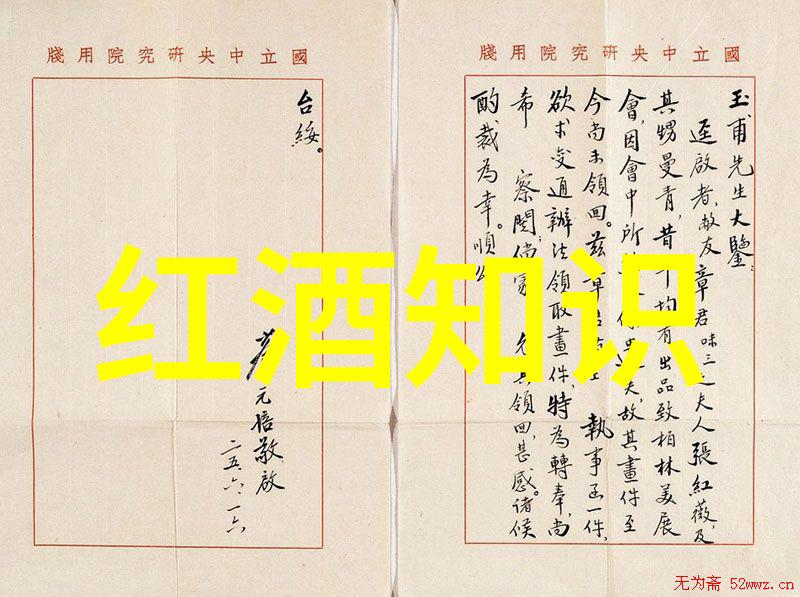 國立中央研究院用牋
玉甫先生大鑒:
逕啟者,敝友章君味三之夫人張紅薇,及
其甥曼青,昔均有出品致柏林美展
會,因會中所夫,故其畫件至
今尚未領回。茲執事函一件,
欲求變通辦法領取畫件,特為轉奉,尚
希 察閱,倘蒙 領回,甚感。諸候
酌裁為幸。順
國立中央研究院用牋
台綏。
元培敬啟
二五、六、一六
红酒知识
无为斋 52wwz.cn